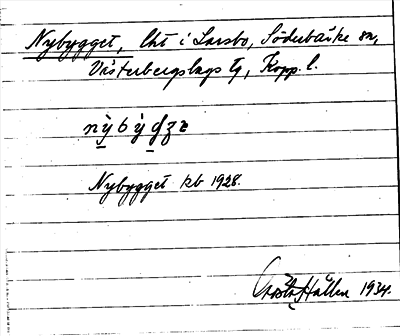 Nybygget, lht i Larsbo, Söderbärke sn,
Västerbergslags tg, Kopp. l.
Nybygget kb 1928.
Hallén 1934.